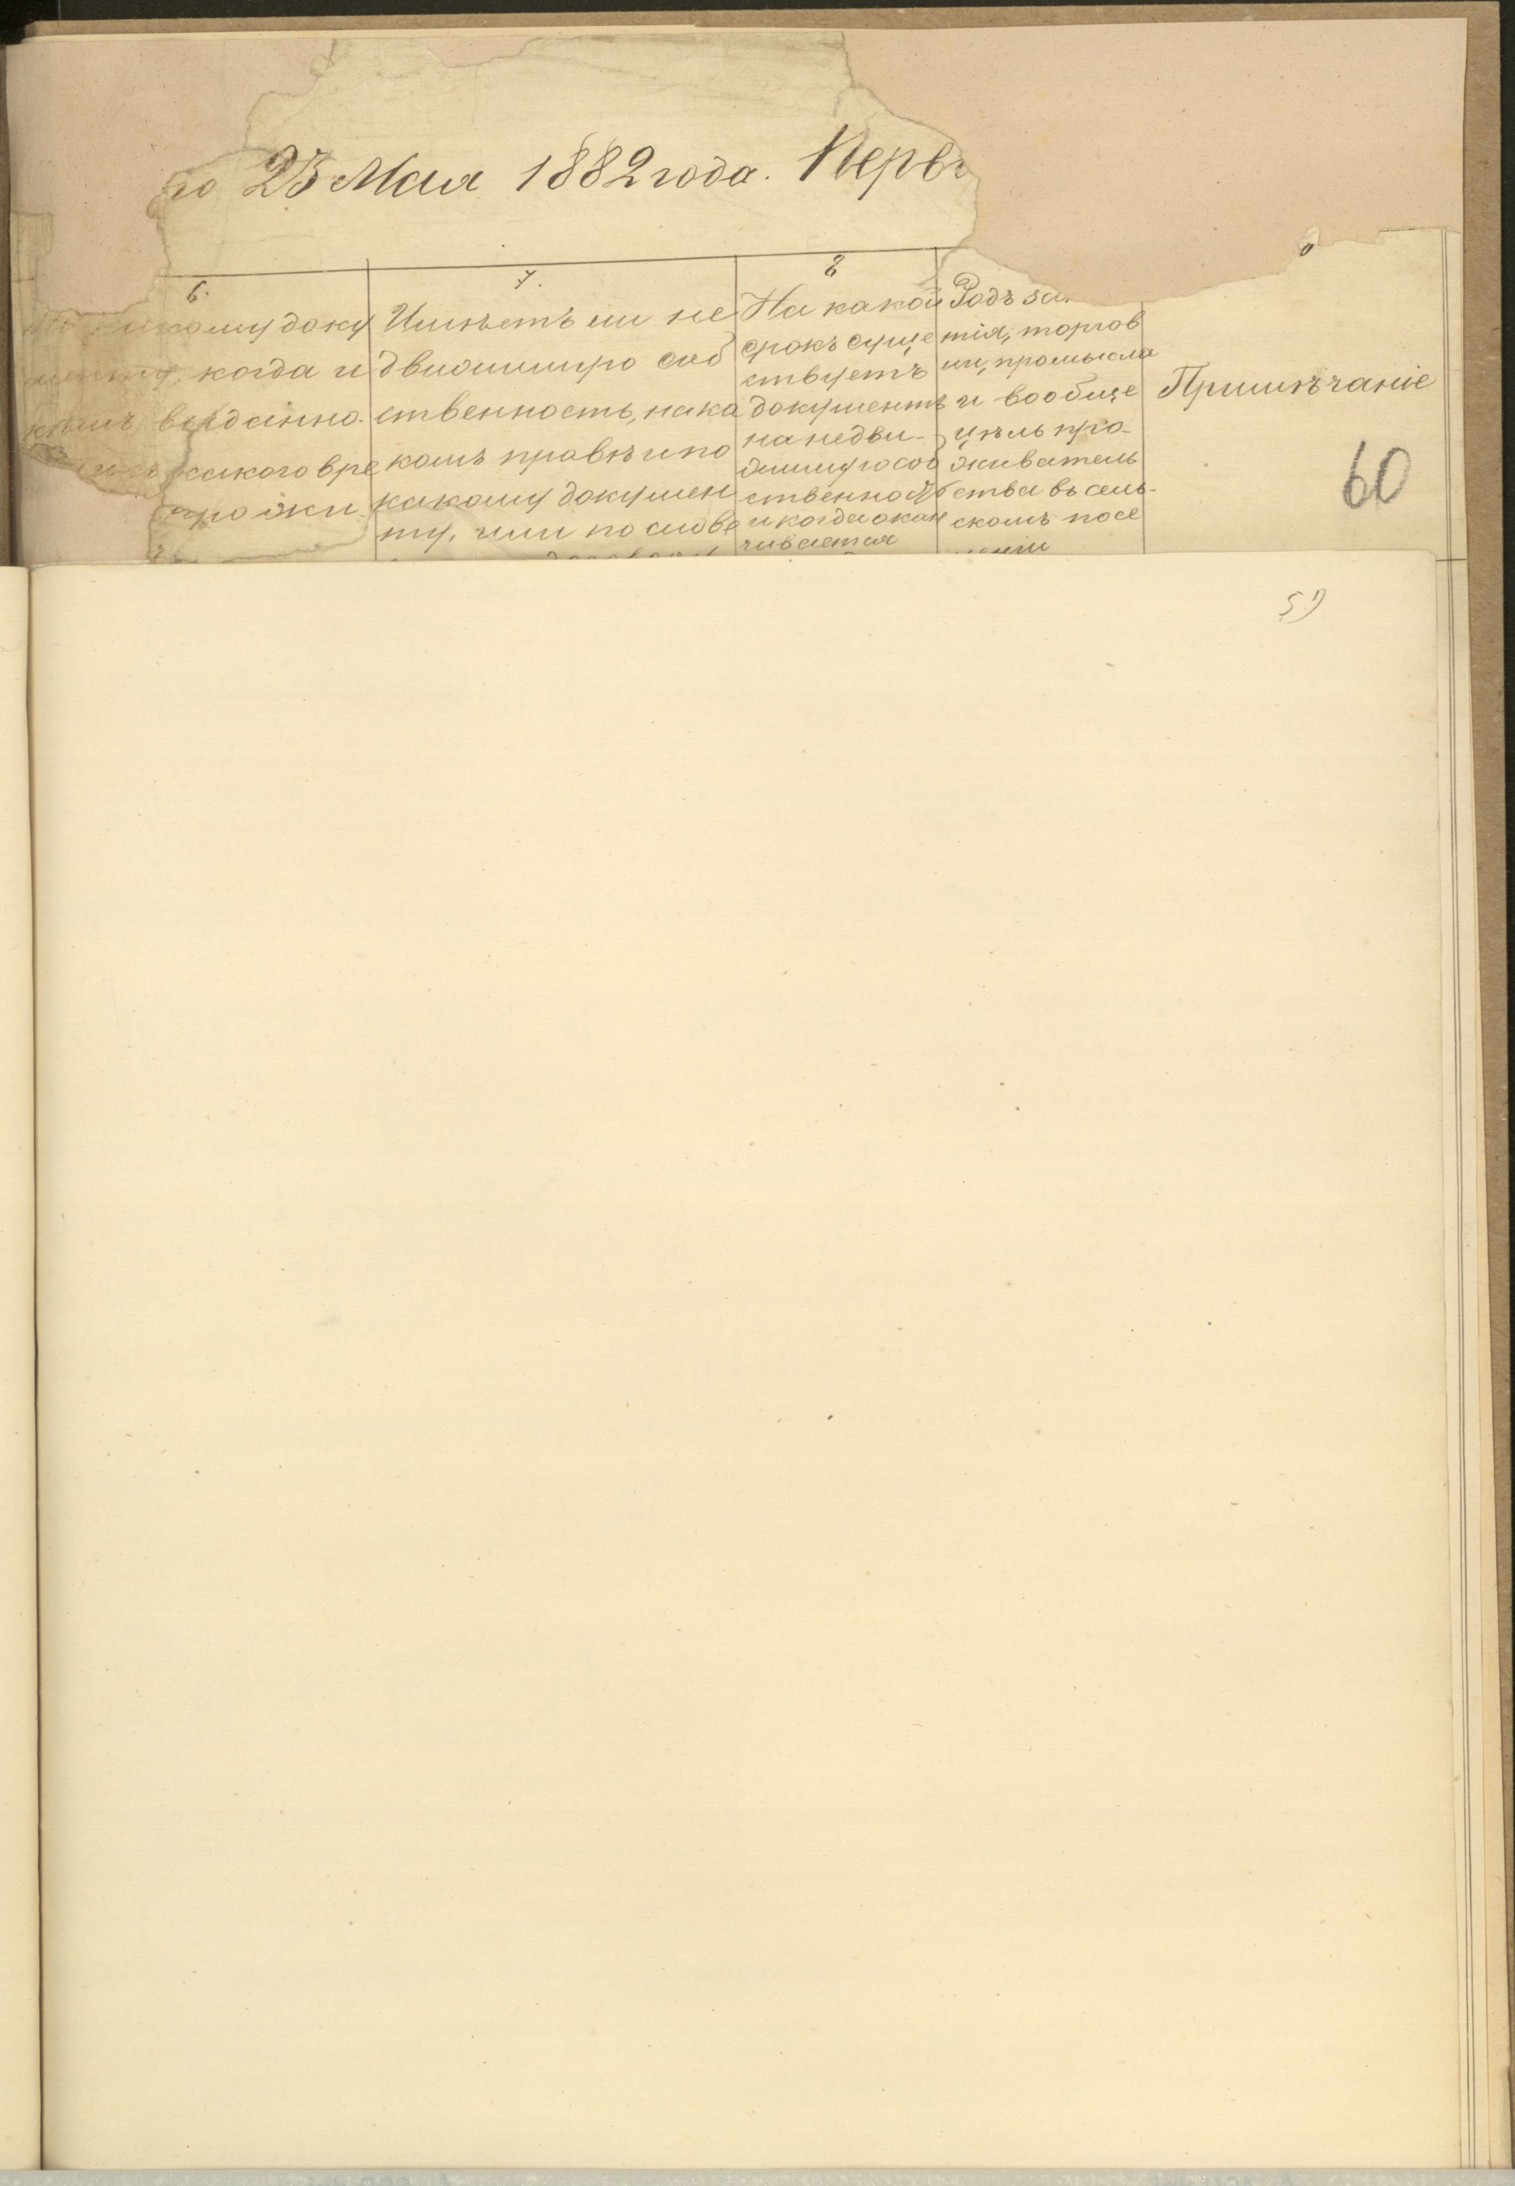 го 23 Мая 1882 года. Перв
6.
какому доку
когда и
кѣмъ выданно.
какого вре
прожи
7.
Имѣетъ ли не
движимую соб
ственность, на ка
комъ правѣ и по
какому докумен
ту, или по слове
8
На какой
срокъ суще
ствуетъ
документъ
на недви-
жимую соб
ственность
и когда окан
чивается
Родъ за
тія, торгов
ли, промысла
и вообще
цѣль про-
живатель
ства въ сель-
скомъ посе
леніи
Примѣчаніе
60